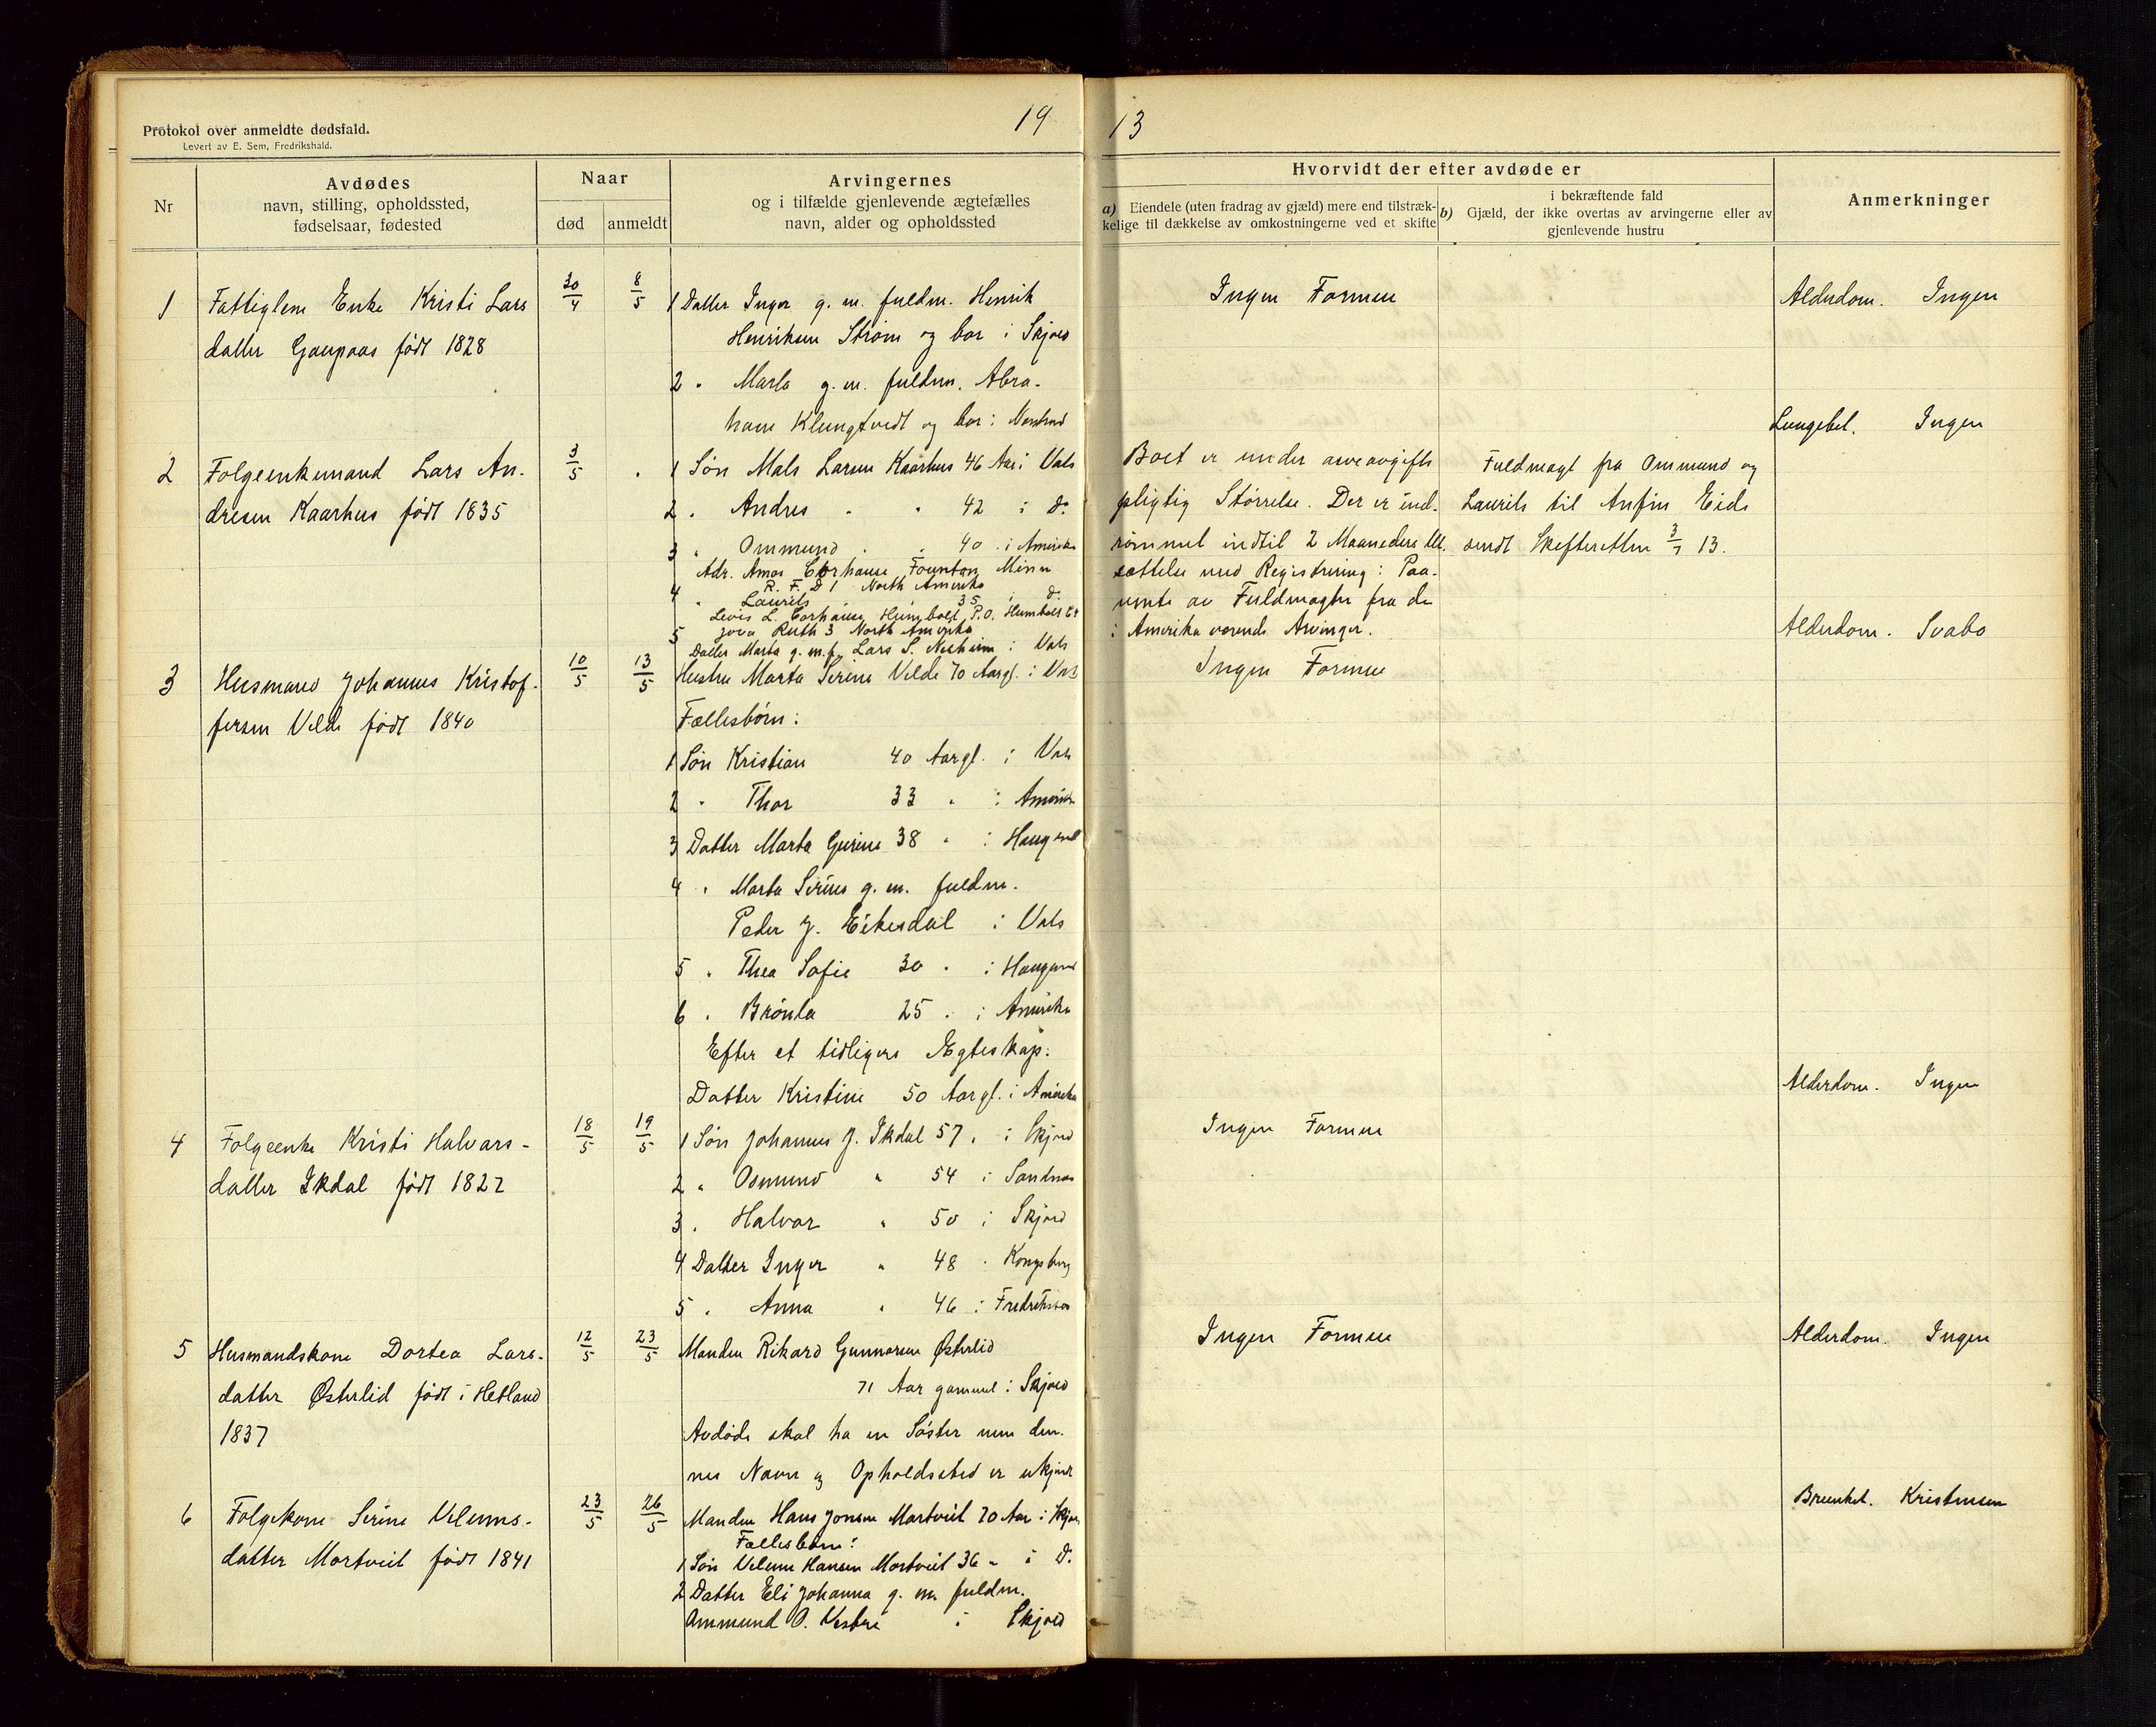 19
13
Protokol over anmeldte dødsfald.
Levert av E. Sem, Fredrikshald.
Nr
Avdødes
navn, stilling, opholdssted,
fødselsaar, fødested
Naar
død
anmeldt
Arvingernes
og i tilfælde gjenlevende ægtefælles
navn, alder og opholdssted
Hvorvidt der efter avdøde er
a) Eiendele (uten fradrag av gjæld) mere end tilstræk-
kelige til dækkelse av omkostningerne ved et skifte
i bekræftende fald
b) Gjæld, der ikke overtas av arvingerne eller av
gjenlevende hustru
Anmerkninger
1 Fattiglem Enke Kristi Lars
datter Gaupaas født 1828
30/4
8/5
1 Datter Inger g. m. fuldm. Henrik
Henriksen Strøm og bor i Skjold
2 " Marta g. m. fuldm. Abra-
ham Klungtvedt og bor i
Ingen Formue
Alderdom. Ingen
2 Folgeenkemand Lars An-
dresen Kaarhus født 1835
3/5
"
1 Søn Mals Larsen Kaarhus 46 Aar i Vats
2 " Andres " " 42 i do
3 " Ommund " " 40 i Amerika
Adr. Amos Corhause Fountan Minn
R. F. D 1 North Amerika
4 " Laurits " 35 i do
Levis L. Corhause Humbolt P.O. Humbolt
Jova Ruth 3 North Amerika
5 Datter Marta g. m. f. Lars S. Nesheim i Vats
Boet er under arveavgifts
pligtig Størrelse. Der er ind-
rømmet indtil 2 Maaneders Ut-
sættelse med Registrering i Paa-
vente av Fuldmagter fra de
i Amerika værende Arvinger.
Fuldmagt fra Ommund og
Laurits til Anfin Eide
sendt Skifteretten 3/7 13.
Lungebet. Ingen
3 Husmand Johannes Kristof-
fersen Velde født 1840
10/5
13/5
Hustru Marta Serine Velde 70 Aargl. i Vats
Fællesbørn:
1 Søn Kristian 40 Aargl. i Vats
2 " Thor 33 " i Amerika
3 Datter Marta Gurine 38 " i Haugesund
4 " Marta Serine g. m. fuldm.
Peder J. Eikesdal i Vats
5 " Thea Sofie 30 " i Haugesund
6 " Brønla 25 " i Amerika
Efter et tidligere Ægteskap:
Datter Kristine 50 Aargl. i Amerika
Ingen Formue
Alderdom. Svabo
4 Folgeenke Kristi Halvars-
datter Ikdal født 1822
18/5
19/5
1 Søn Johannes J. Ikdal 57 " i Skjold
2 " Osmund " 54 i Sandnes
3 " Halvor " 50 i Skjold
4 Datter Inger " 48 " Kongsberg
5 " Anna " 46 i Fredrikstad
Ingen Formue
Alderdom. Ingen
5 Husmandskone Dortea Lars-
datter Østerlid født i Hetland
1837
12/5
23/5
Manden Rikard Gunnarsen Østerlid
71 Aar gammel i Skjold
Avdøde skal ha en Søster men den-
nes Navn og Opholdssted er ukjendt
Ingen Formue
Alderdom. Ingen
6 Folgekone Serine Velems-
datter Mortveit født 1841
23/5
26/5
Manden Hans Jonsen Mortveit 70 Aar i Skjold
Fællesbørn:
1 Søn Velem Hansen Mortveit 36 " i do
2 Datter Eli Johanna g. m. fuldm.
Ommund O. i Skjold
Kristensen